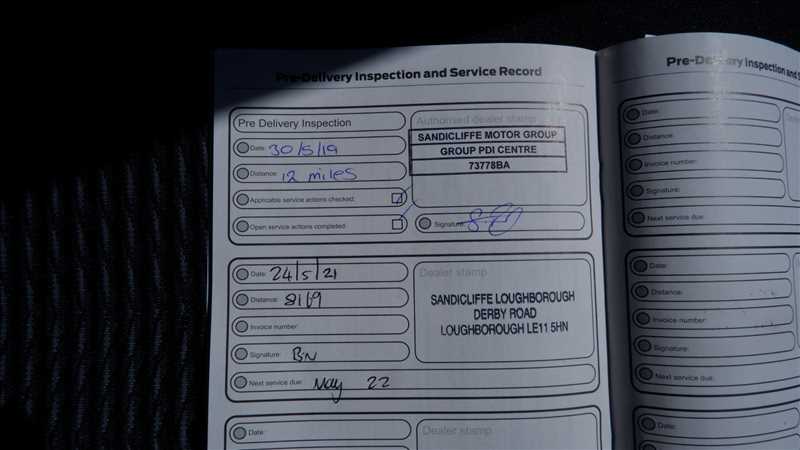 Pre-Delivery Inspection and Service Record
Pre Delivery Inspection
Date: 30/5/19
Distance: 12 miles
Applicable service actions checked:
Open service actions completed:
Authorised dealer stamp
SANDICLIFFE MOTOR GROUP
GROUP PDI CENTRE
73778BA
Signature:
Date: 24/5/21
Distance: 8169
Invoice number:
Signature: BN
Next service due: May 22
Dealer stamp
SANDICLIFFE LOUGHBOROUGH
DERBY ROAD
LOUGHBOROUGH LE11 5HN
Date:
Dealer stamp
Pre-Delivery Inspection and S
Date:
Distance:
Invoice number:
Signature:
Next service due:
Date:
Distance:
Invoice number:
Signature:
Next service due:
Date: